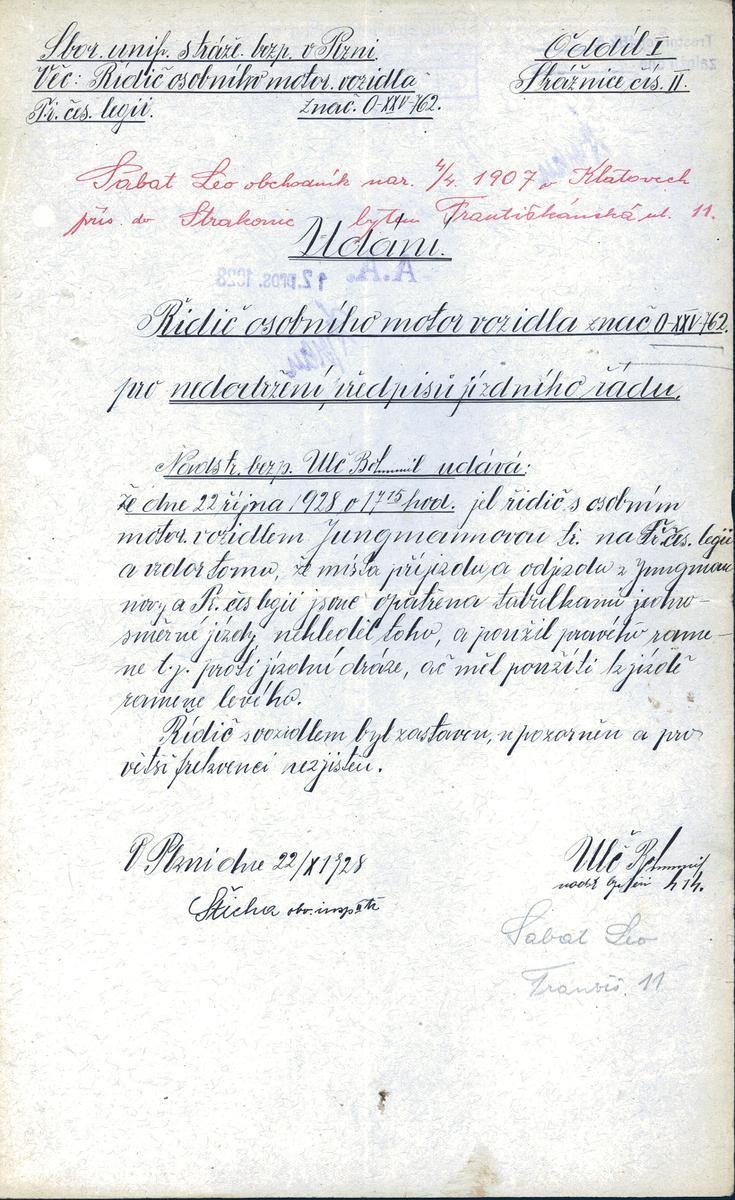 Sbor. unif. stráže. bezp. v Plzni.
Oddíl I
Věc: Řidič osobního motor. vozidla
Strážnice čís. II.
Tř. čs. legií.
znač. O-XXV-762.
Sabat Leo obchodník nar. 4/4. 1907 v Klatovech
přís. do Strakonic bytem Františkánská ul. 11.
Udání.
A.A. 12. pros. 1928
Řidič osobního motor vozidla znač O-XXV-762.
pro nedodržení předpisů jízdního řádu.
Nadstr. bezp. Ulč Bohumil udává:
že dne 22 října 1928 o 17 15 hod. jel řidič s osobním
motor. vozidlem Jungmannovou tř. na Tř. čs. legií
a vzdor tomu, že místa příjezdu a odjezdu z Jungman
novy a Tř. čs legií jsou opatřena tabulkami jedno-
směrné jízdy nehleděl toho, a použil pravého rame-
ne t.j. proti jízdní dráze, ač měl použíti k jízdě
ramene levého.
Řidič s vozidlem byl zastaven, upozorněn a pro
větší frekvenci nezjištěn.
V Plzni dne 22/X 1928
Ulč Bohumil
Šticha obv. insp
414.
Sabat Leo
Františ. 11